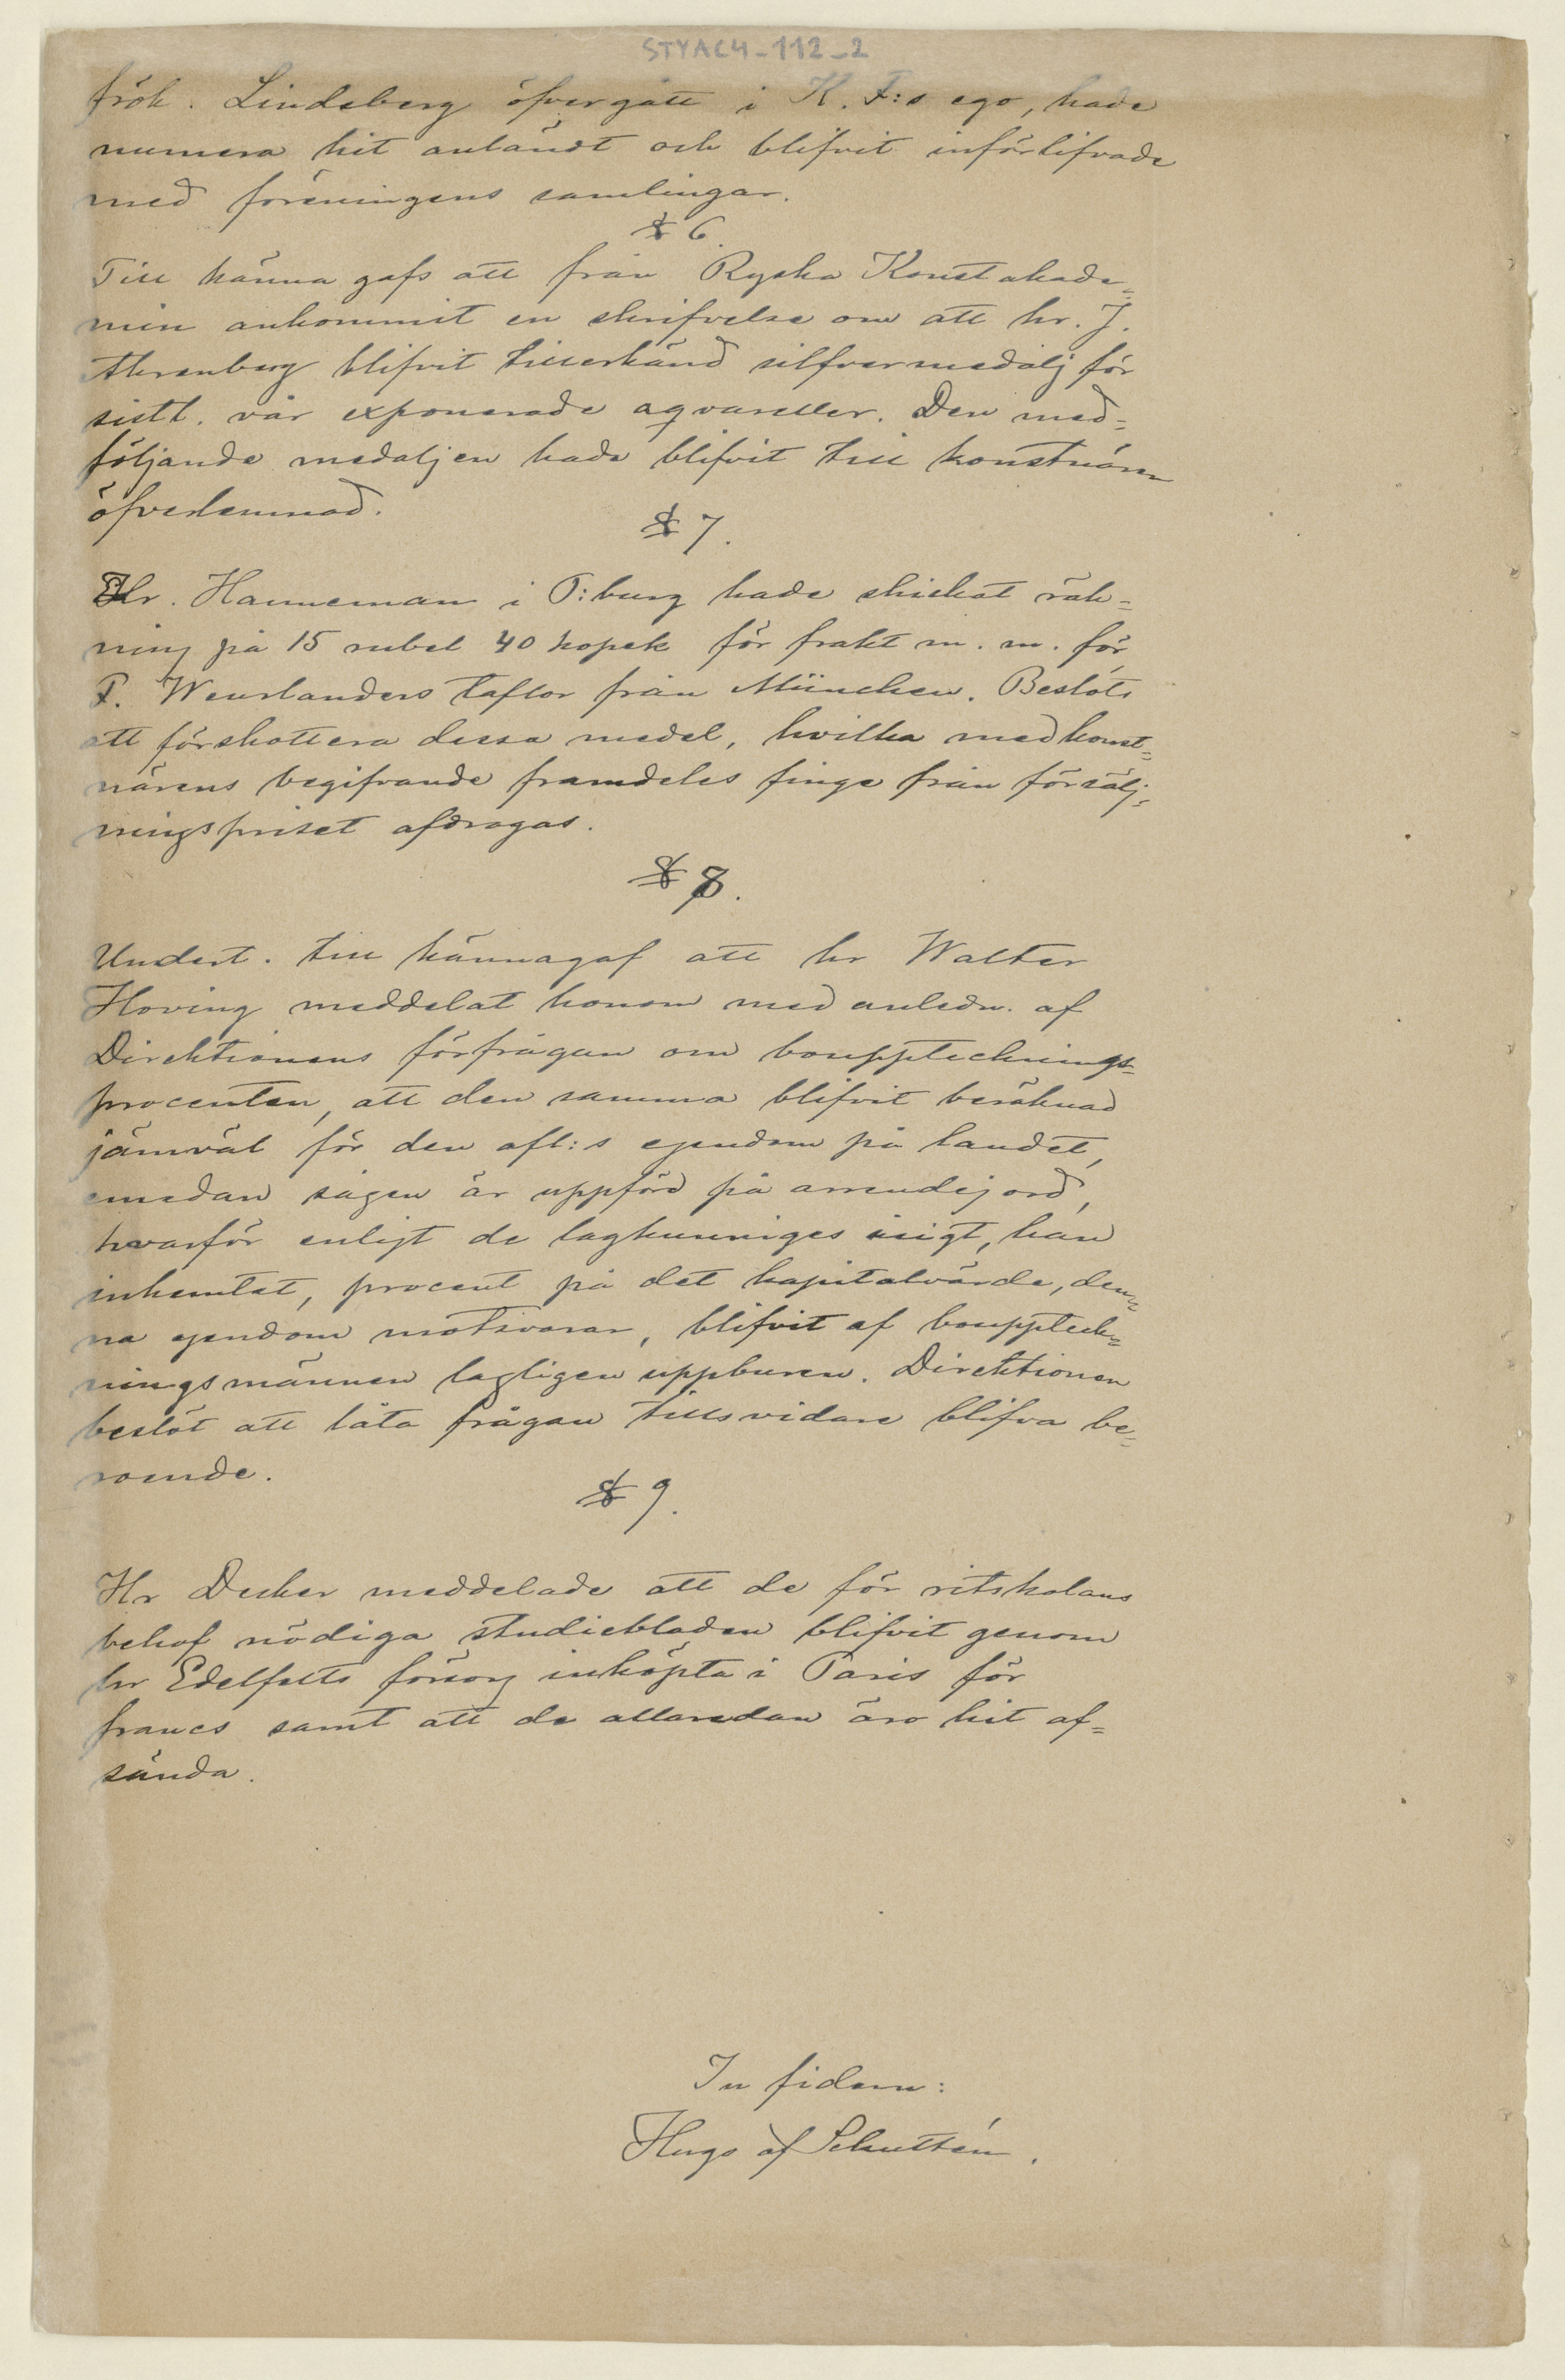 STYAC4-112-2
frök. Lindsberg öfvergått i K. F:s ego, hade
numera hit anländt och blifvit införlifvade
med föreningens samlingar.
§ 6.
Till känna gafs att från Ryska Konstakade=
min ankommit en skrifvelse om att hr. J.
Ahrenberg blifvit tillerkänd silfvermedalj för
sistl. vår exponerade aqvareller. Den med=
följande medaljen hade blifvit till konstnären
öfverlemnad.
§ 7.
Hr. Hanneman i P:burg hade skickat räk=
ning på 15 rubel 40 kopek för frakt m. m. för
F. Wenrlanders taflor från München. Beslöts
att förskottera dessa medel, hvilka med konst=
närens begifvande framdeles finge från försälj=
ningspriset afdragas.
§ 8.
Undert. till kännagaf att hr Walter
Hoving meddelat honom med anledn. af
Direktionens förfrågan om bouppteckningst=
procenten, att den samma blifvit beräknad
jämväl för den afl:s egendom på landet,
emedan sågen är uppförd på arrendejord,
hvarför enligt de lagkunniges åsigt, han
inhemtat, procent på det kapitalvärde, den=
na egendom motsvarar, blifvit af bouppteck=
ningsmännen lagligen uppburen. Direktionen
beslöt att låta frågan tillsvidare blifva be=
roende.
§ 9.
Hr Decker meddelade att de för ritskolans
behof nödiga studiebladen blifvit genom
hr Edelfelts försorg inköpta i Paris för
francs samt att de allaredan äro hit af=
sända.
In fidem:
Hugo af Schultén.